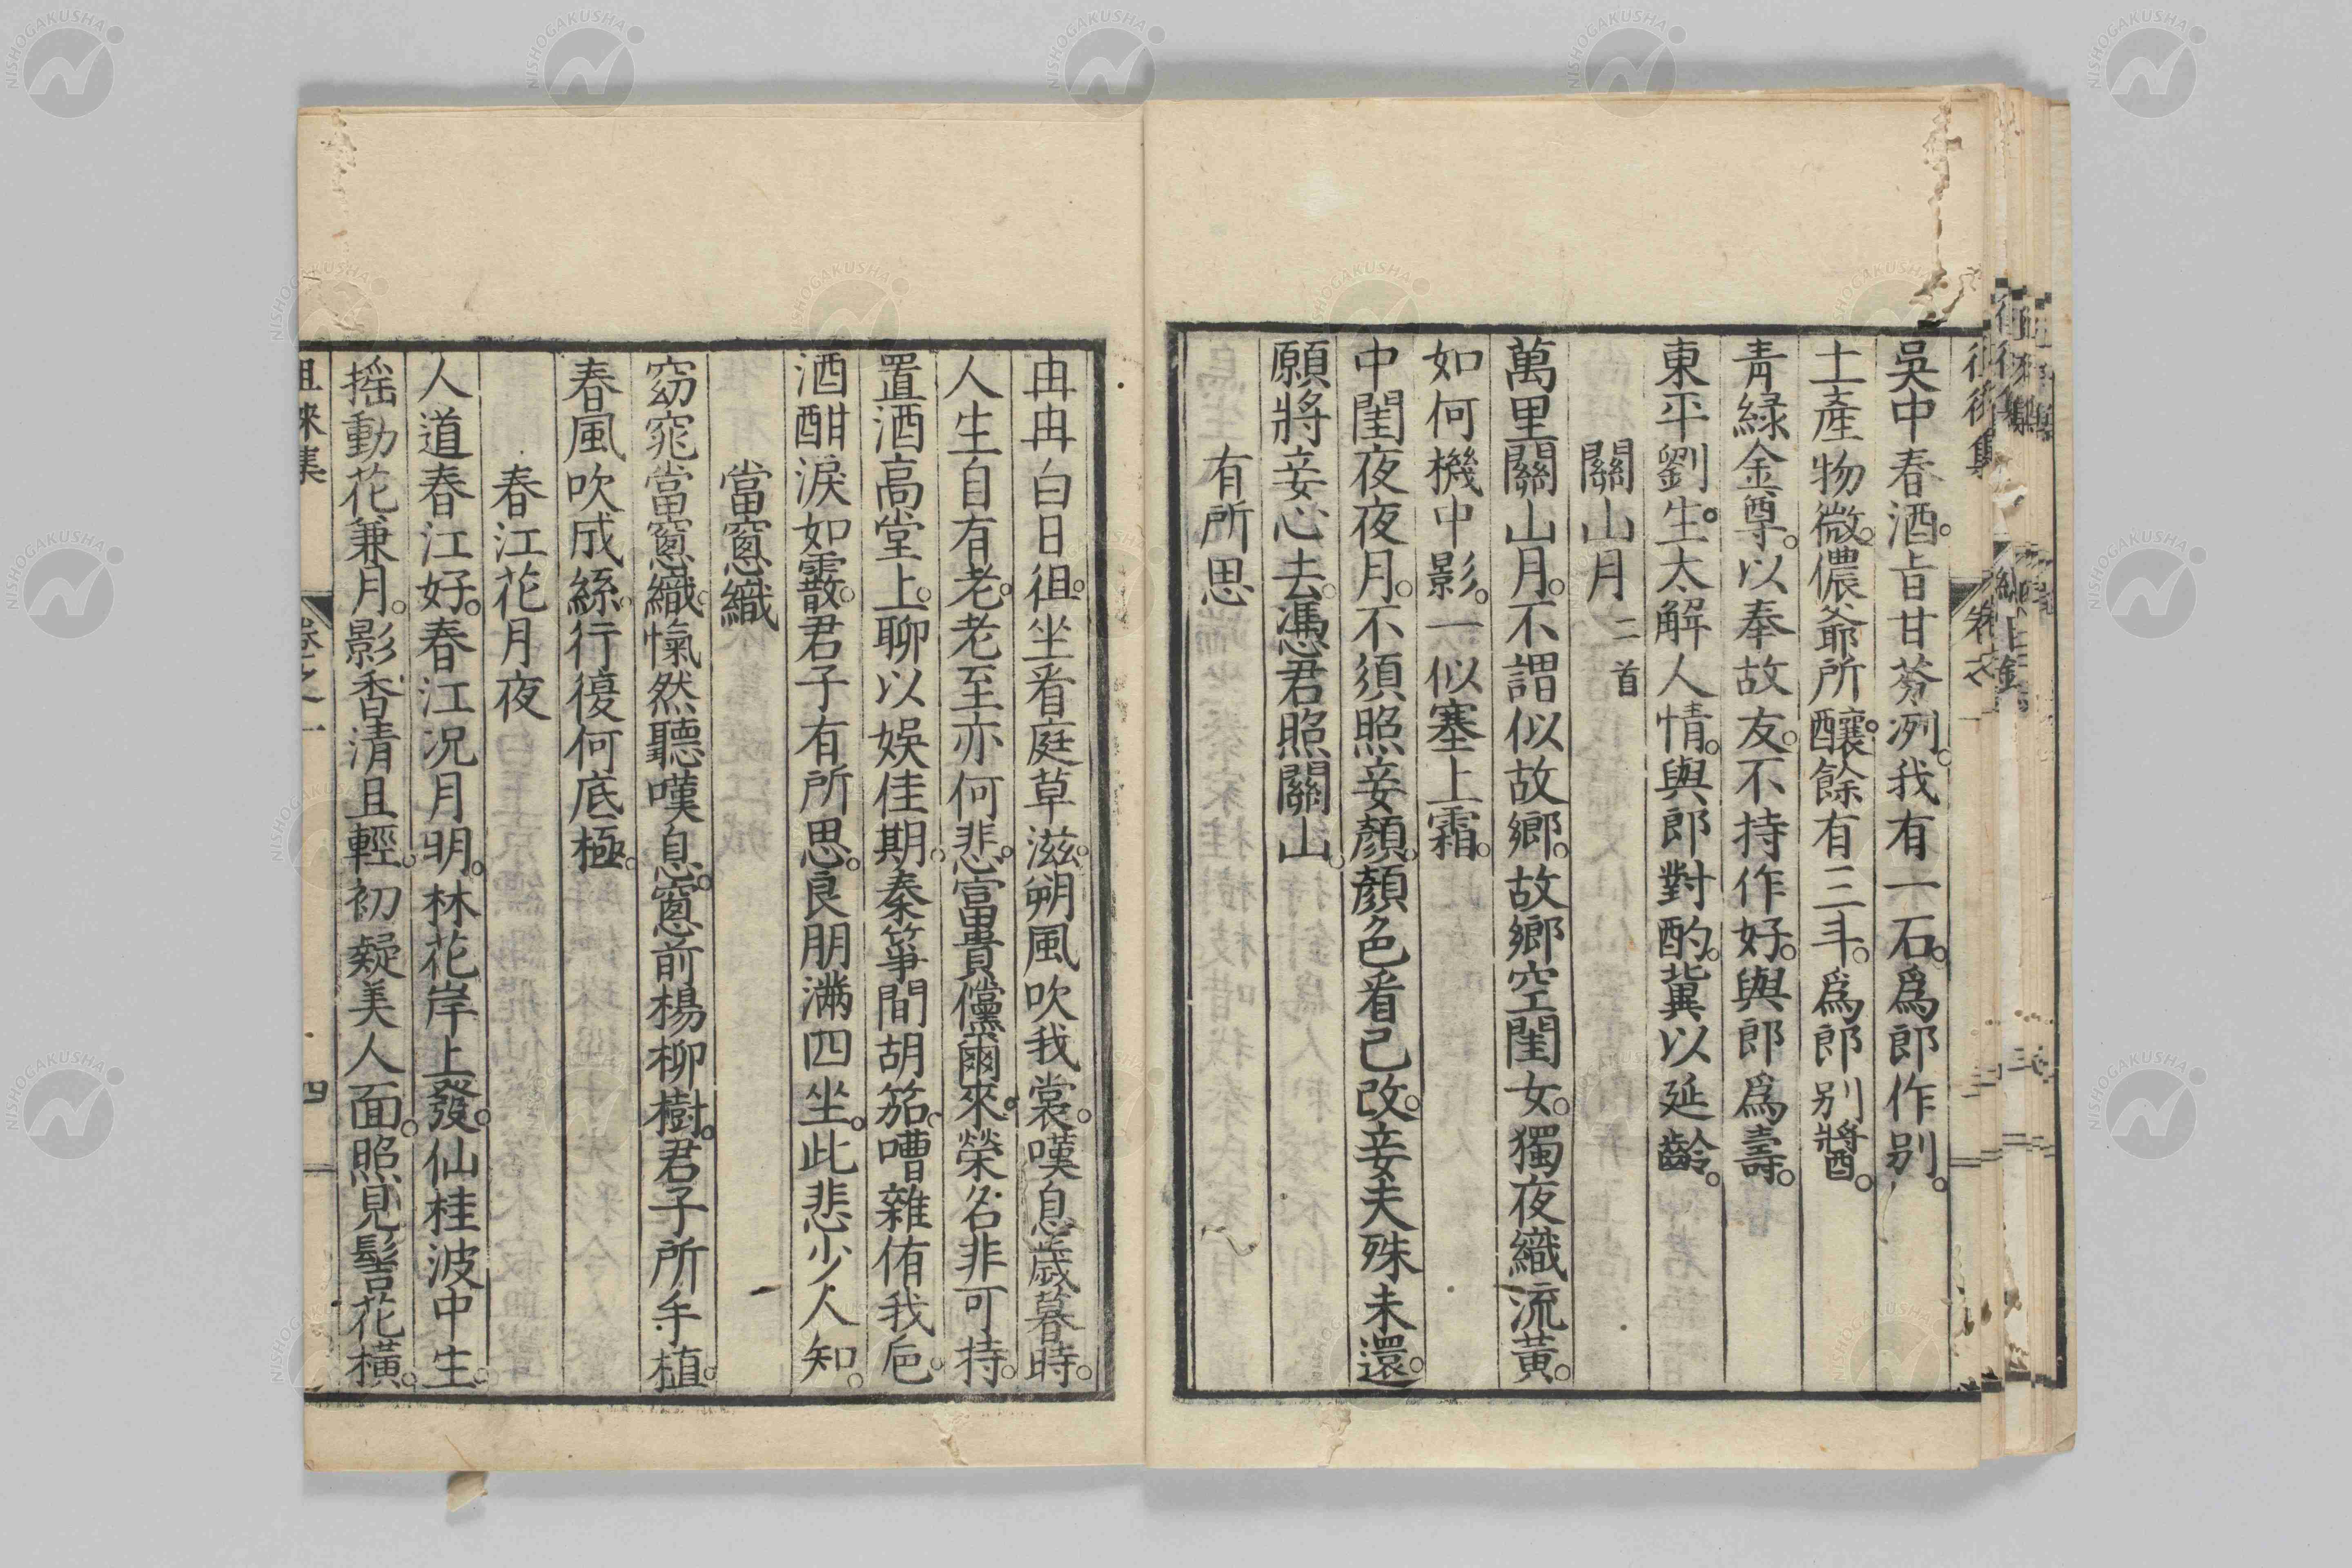 吳中春酒。旨甘芬冽。我有一石。爲郎作别。
土產物微。儂爺所釀。餘有三斗。爲郎别醬。
青綠金尊。以奉故友。不持作好。與郎爲壽。
東平劉生。太解人情。與郎對酌。冀以延齡。
關山月 二首
萬里關山月。不謂似故鄉。故鄉空閨女。獨夜織流黃。
如何機中影。一似塞上霜。
中閨夜夜月。不須照妾顏。顏色看已改。妾夫殊未還。
願將妾心去。憑君照關山。
有所思
冉冉白日徂。坐看庭草滋。朔風吹我裳。嘆息歲暮時。
人生自有老。老至亦何悲。富貴儻爾來。榮名非可持。
置酒高堂上。聊以娛佳期。秦箏間胡笳。嘈雜侑我卮。
酒酣淚如霰。君子有所思。良朋滿四坐。此悲少人知。
當窻織
窈窕當窻織。愾然聽嘆息。窻前楊柳樹。君子所手植。
春風吹成絲。行復何底極。
春江花月夜
人道春江好。春江况月明。林花岸上發。仙桂波中生。
摇動花兼月。影香清且輕。初疑美人面。照見髻花橫。
徂徠集 卷之一 四
NISHOGAKUSHA
NISHOGAKUSHA
NISHOGAKUSHA
NISHOGAKUSHA
NISHOGAKUSHA
NISHOGAKUSHA
NISHOGAKUSHA
NISHOGAKUSHA
NISHOGAKUSHA